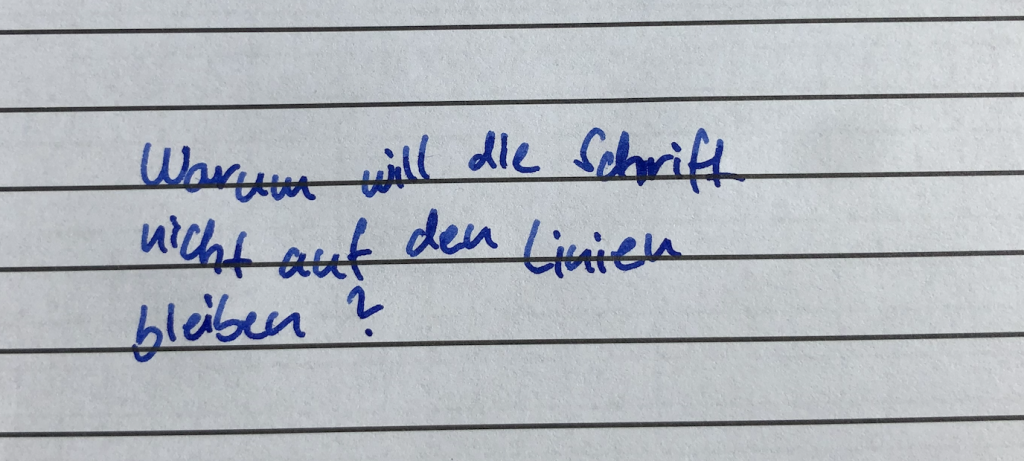 Warum will die Schrift
nicht auf den Linien
bleiben ?